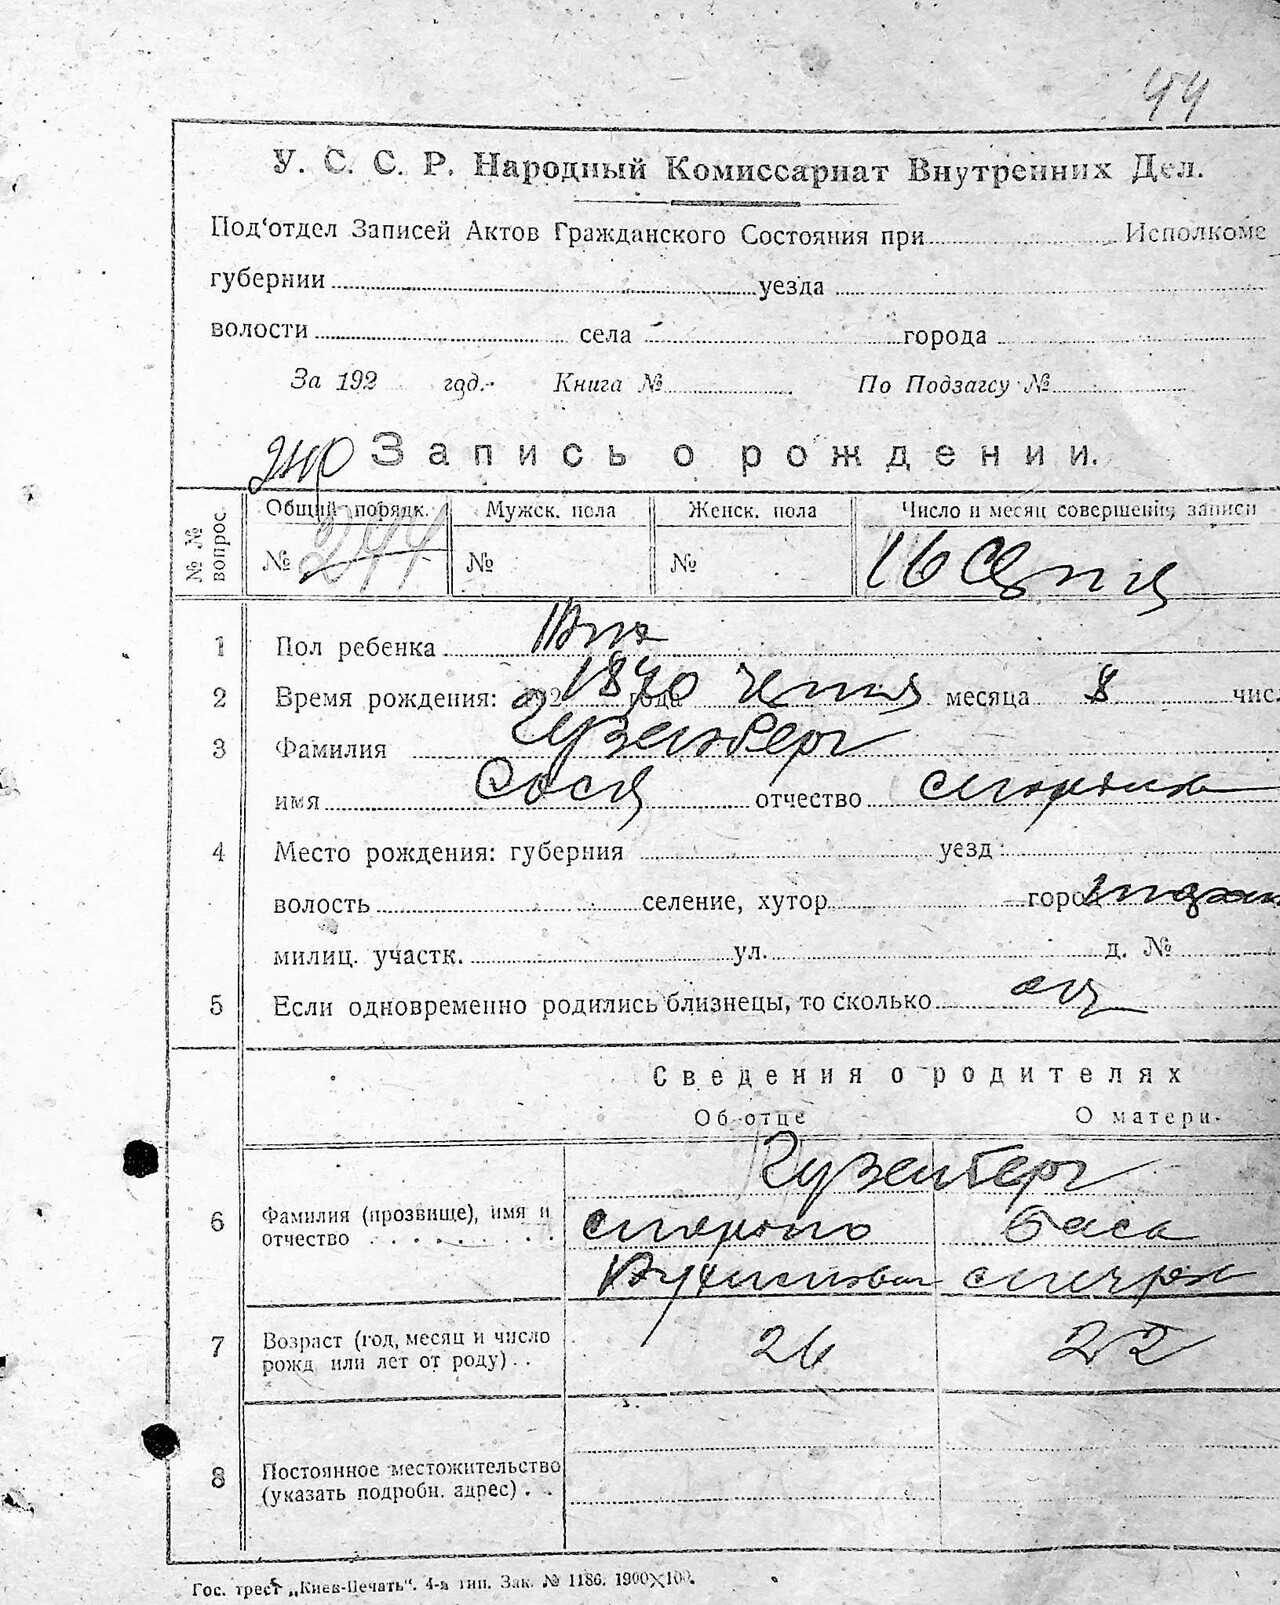 44
У. С. С. Р. Народный Комиссариат Внутренних Дел.
Под‘отдел Записей Актов Гражданского Состояния при Исполкоме
губернии уезда
волости села города
За 192 год. Книга № По Подзагсу №
Запись о рождении.
№ № вопрос.
Общий порядк. Мужск. пола Женск. пола Число и месяц совершения записи
№ 244 № № 16
1 Пол ребенка
2 Время рождения: 192 года месяца 8 числ
3 Фамилия Гузенберг
имя Сося отчество
4 Место рождения: губерния уезд
волость селение, хутор город
милиц. участк. ул. д. №
5 Если одновременно родились близнецы, то сколько
Сведения о родителях
Об отце О матери.
Гузенберг
6 Фамилия (прозвище), имя и отчество Бася
7 Возраст (год, месяц и число рожд или лет от роду) . . 26 22
8 Постоянное местожительство (указать подробн. адрес) . .
Гос. трест „Киев-Печать“. 4-я тип. Зак. № 1186. 1900×100.